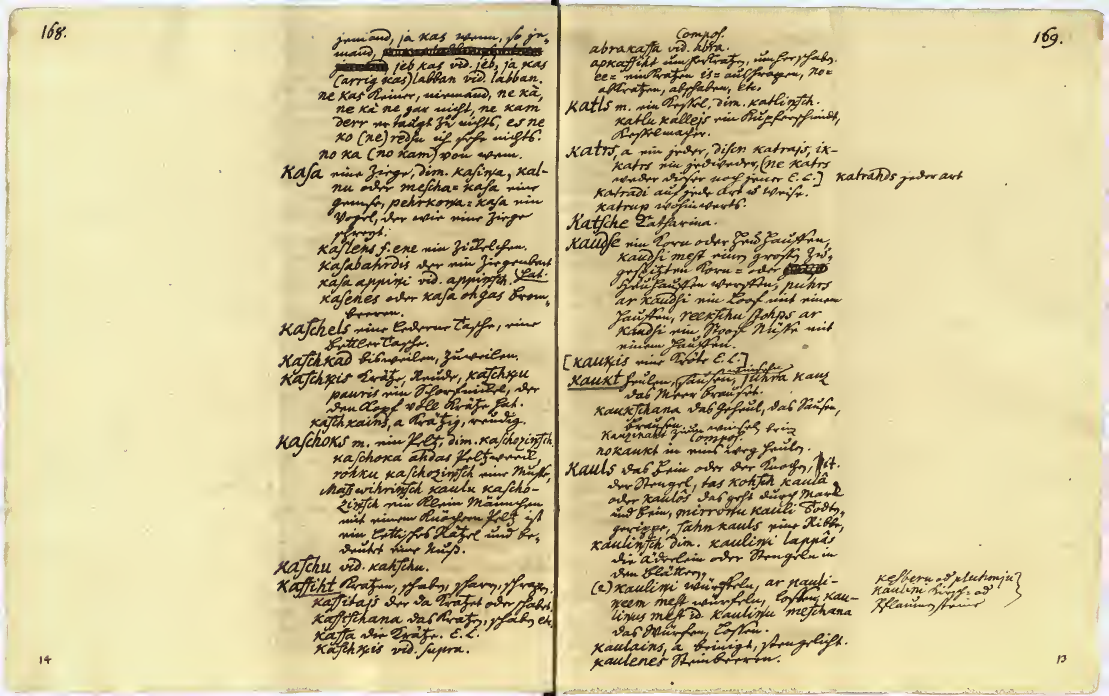 168.
jemand, ja kas wenn, so je-
mand,
jeb kas vid. jeb, ja kas
(arrig kas) labban vid. labban.
ne kas keiner, niemand, ne kâ,
ne kâ ne gar nicht, ne kam
derr er taugt zu nichts, es ne
ko (ne) redsu ich sehe nichts.
no ka (no kam) von wem.
Kasa eine Ziege, dim. kasiņa, kal-
nu oder mescha= kasa eine
gemse, pehrkona= kasa ein
Vogel, der wie eine Ziege
kaslens s. ene ein Zickelchen.
kasabahrdis der ein Ziegenbart
kasa appini vid. appinsch. hat.
kasenes oder kasa ohgas brom-
beeren.
Kaschels eine lederne Tasche, eine
bettler Tasche.
Kaschkad bisweilen, Zuweilen.
Kaschkis Krätze, Reude, kaschku
pauris ein, der
den Kopf voll Krätze hat.
kaschkains, a Krätzig, reudig.
Kaschoks m. ein Peltz, dim. kaschozinsch.
kaschoka ahdas Peltzwerck,
Mass wihrinsch kaulu kascho-
zinsch ein klein Männchen
mit einem Knöchern Peltz ist
ein lettisches Rätzel und be-
deutet eine Nuß.
Kaschu vid. kahschu.
Kassiht Kratzen, schaben, scharren,
kassitajs der da Kratzet oder schabet,
kassischana das Kratzen, schaben etc.
kassa die Krätze. E. L.
kaschkis vid. supra.
14
169.
Compos.
abrakassa vid. abra.
apkassiht umherkratzen, umherschaben.
ee= einkratzen is= auskratzen, no=
abkratzen, abschaben, etc.
Katls m. ein Kessel, dim. katlinsch.
katlu kallejs ein Kupferschmidt,
Kesselmacher.
Katrs, a ein jeder, disen katrass, ik-
katrs ein jedweder, (ne katrs
weder dieser noch jener E. L.] katrahds jeder art
katradi auf jede Art u Weise.
katrup wohinwerts.
Katsche Catharina.
Kaudse ein Korn oder Heu Hauffen,
kaudsi mest einen großen Zu-
gespitzten Korn= oder
Heuhauffen werffen, puhrs
ar kaudsi ein Loof mit einem
Hauffen, reekschu stohps ar
kaudsi ein Stoof Nüsse mit
einem Hauffen.
[Kaukis eine Kröte E. L.]
kaukt heulen, sausen, juhra kauz
das Meer brauset.
kaukschana das Geheul, das Sausen,
brausen.
Compos.
nokaukt in eins weg heulen.
Kauls das Bein oder der Knochen, it.
der Stengel, tas kohsch kaulâ
oder kaulôs das geht durch Marck
und Bein, mirronu kauli Todten-
gerippe, sahn kauls eine Ribbe,
kaulinsch dim. kaulini lappâs
die äderlein oder Stengeln in
den Blättern,
(2) kaulini würffeln, ar kauli-
neem mest würfeln, lossen, kau-
linus mest id. kaulinu meschana
das Würfen, Lossen.
kaulini Kirsch= od
Pflaumsteine
kaulains, a beinigt, stengelicht.
kaulenes Steinbeeren.
13